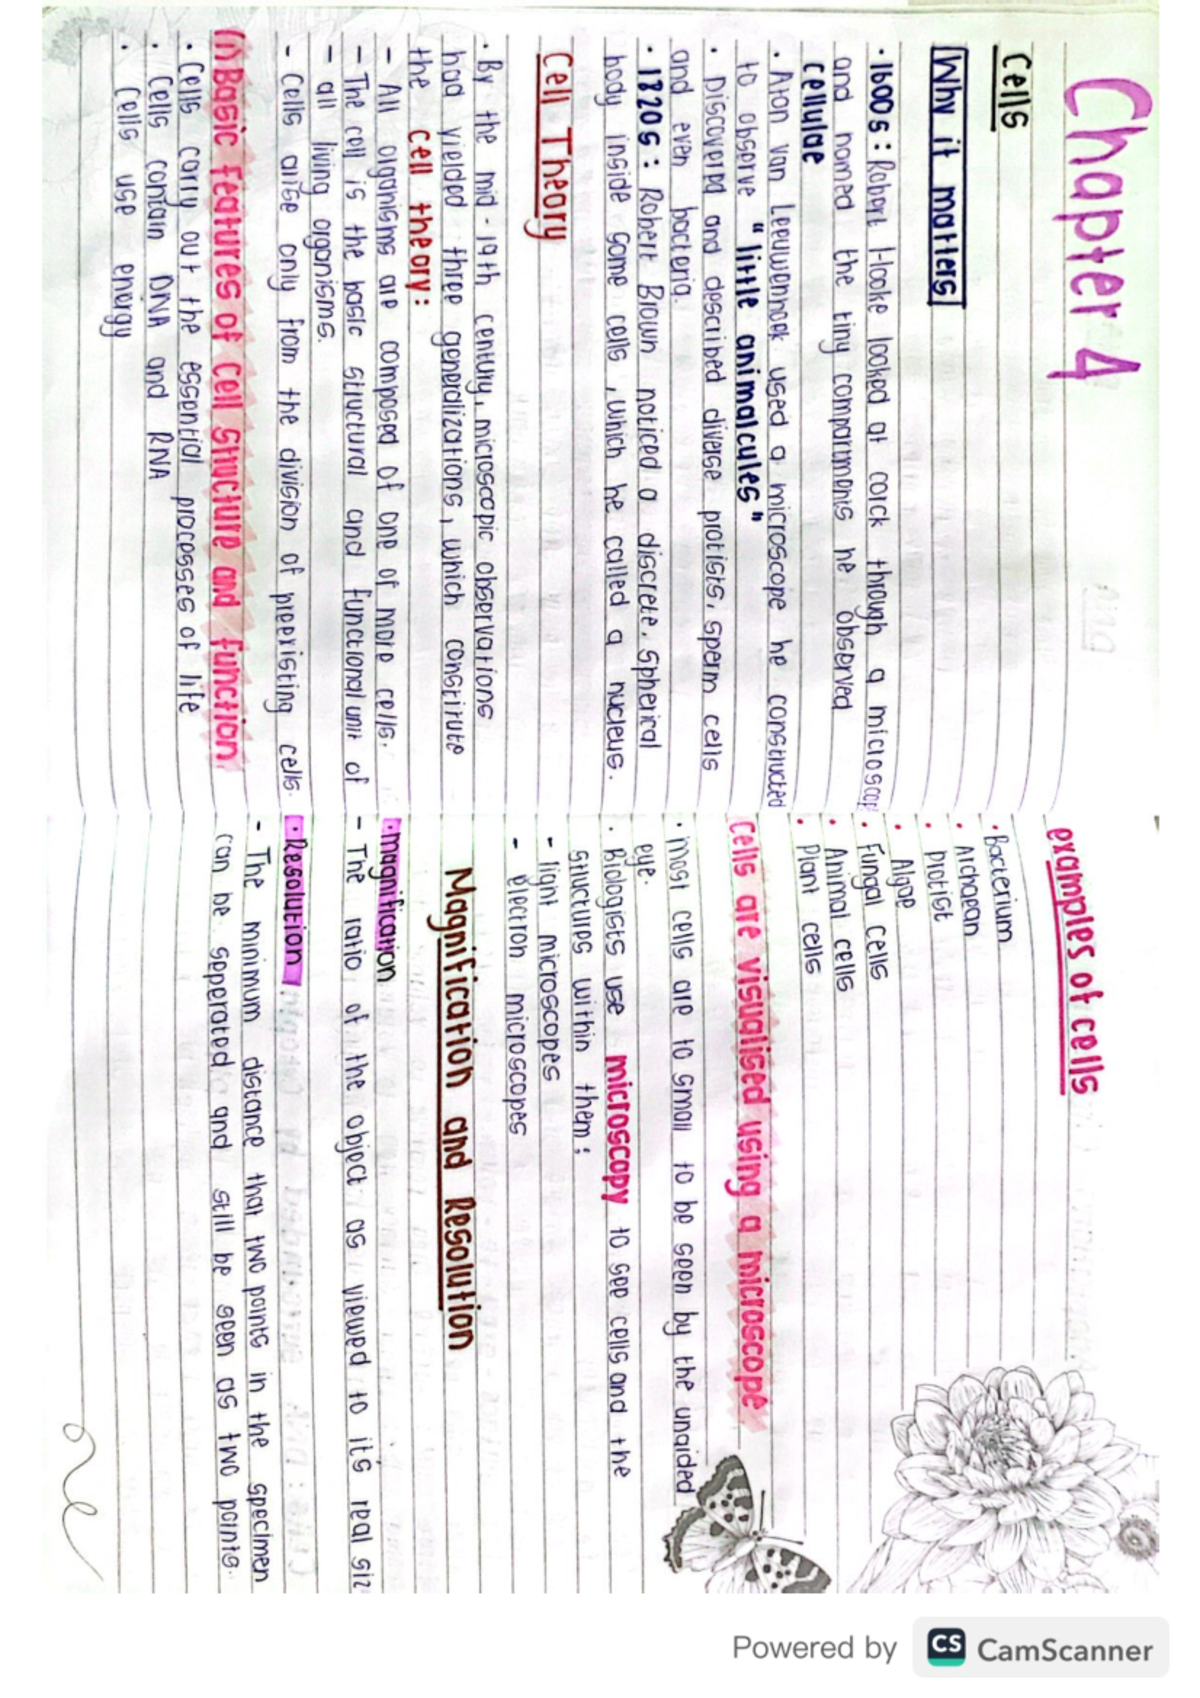 Chapter 4
Cells
Why it matters
· 1600s: Robert Hooke looked at cork through a microscop
and named the tiny compartments he observed
cellulae
· Aton van Leeuwenhoek used a microscope he constructed
to observe "little animalcules"
· Discovered and described diverse protists, sperm cells
and even bacteria.
· 1820s: Robert Brown noticed a discrete, spherical
body inside some cells, which he called a nucleus.
Cell Theory
· By the mid-19th century, microscopic observations
had yielded three generalizations, which constitute
the cell theory:
- All organisms are composed of one or more cells.
- The cell is the basic structural and functional unit of
- all living organisms.
- Cells arise only from the division of preexisting cells.
(1) Basic features of cell structure and function
· Cells carry out the essential processes of life
· Cells contain DNA and RNA
· Cells use energy
examples of cells
· Bacterium
· Archaean
· Protist
· Algae
· Fungal cells
· Animal cells
· Plant cells
Cells are visualised using a microscope
· most cells are to small to be seen by the unaided
eye.
· Biologists use microscopy to see cells and the
structures within them:
- light microscopes
- electron microscopes
Magnification and Resolution
· magnification
- The ratio of the object as viewed to it's real siz
· Resolution
- The minimum distance that two points in the specimen
can be seperated and still be seen as two points.
Powered by CS CamScanner